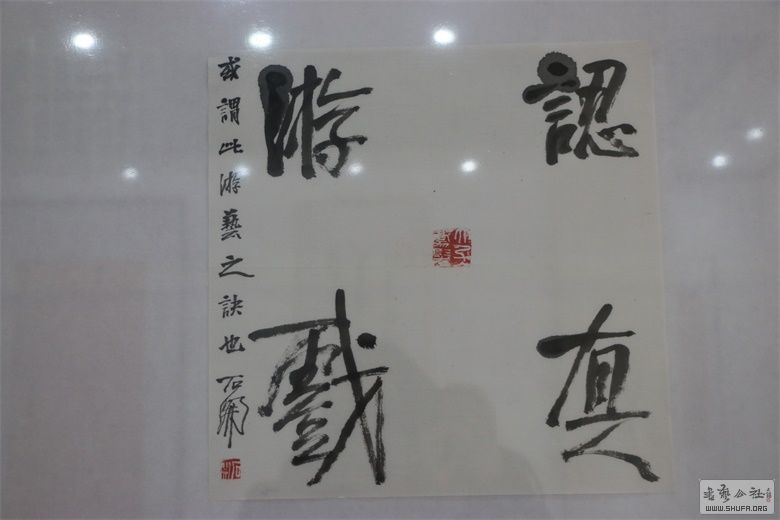 認真
游戲
或謂此游藝之訣也
書藝公社
WWW.SHUFA.ORG